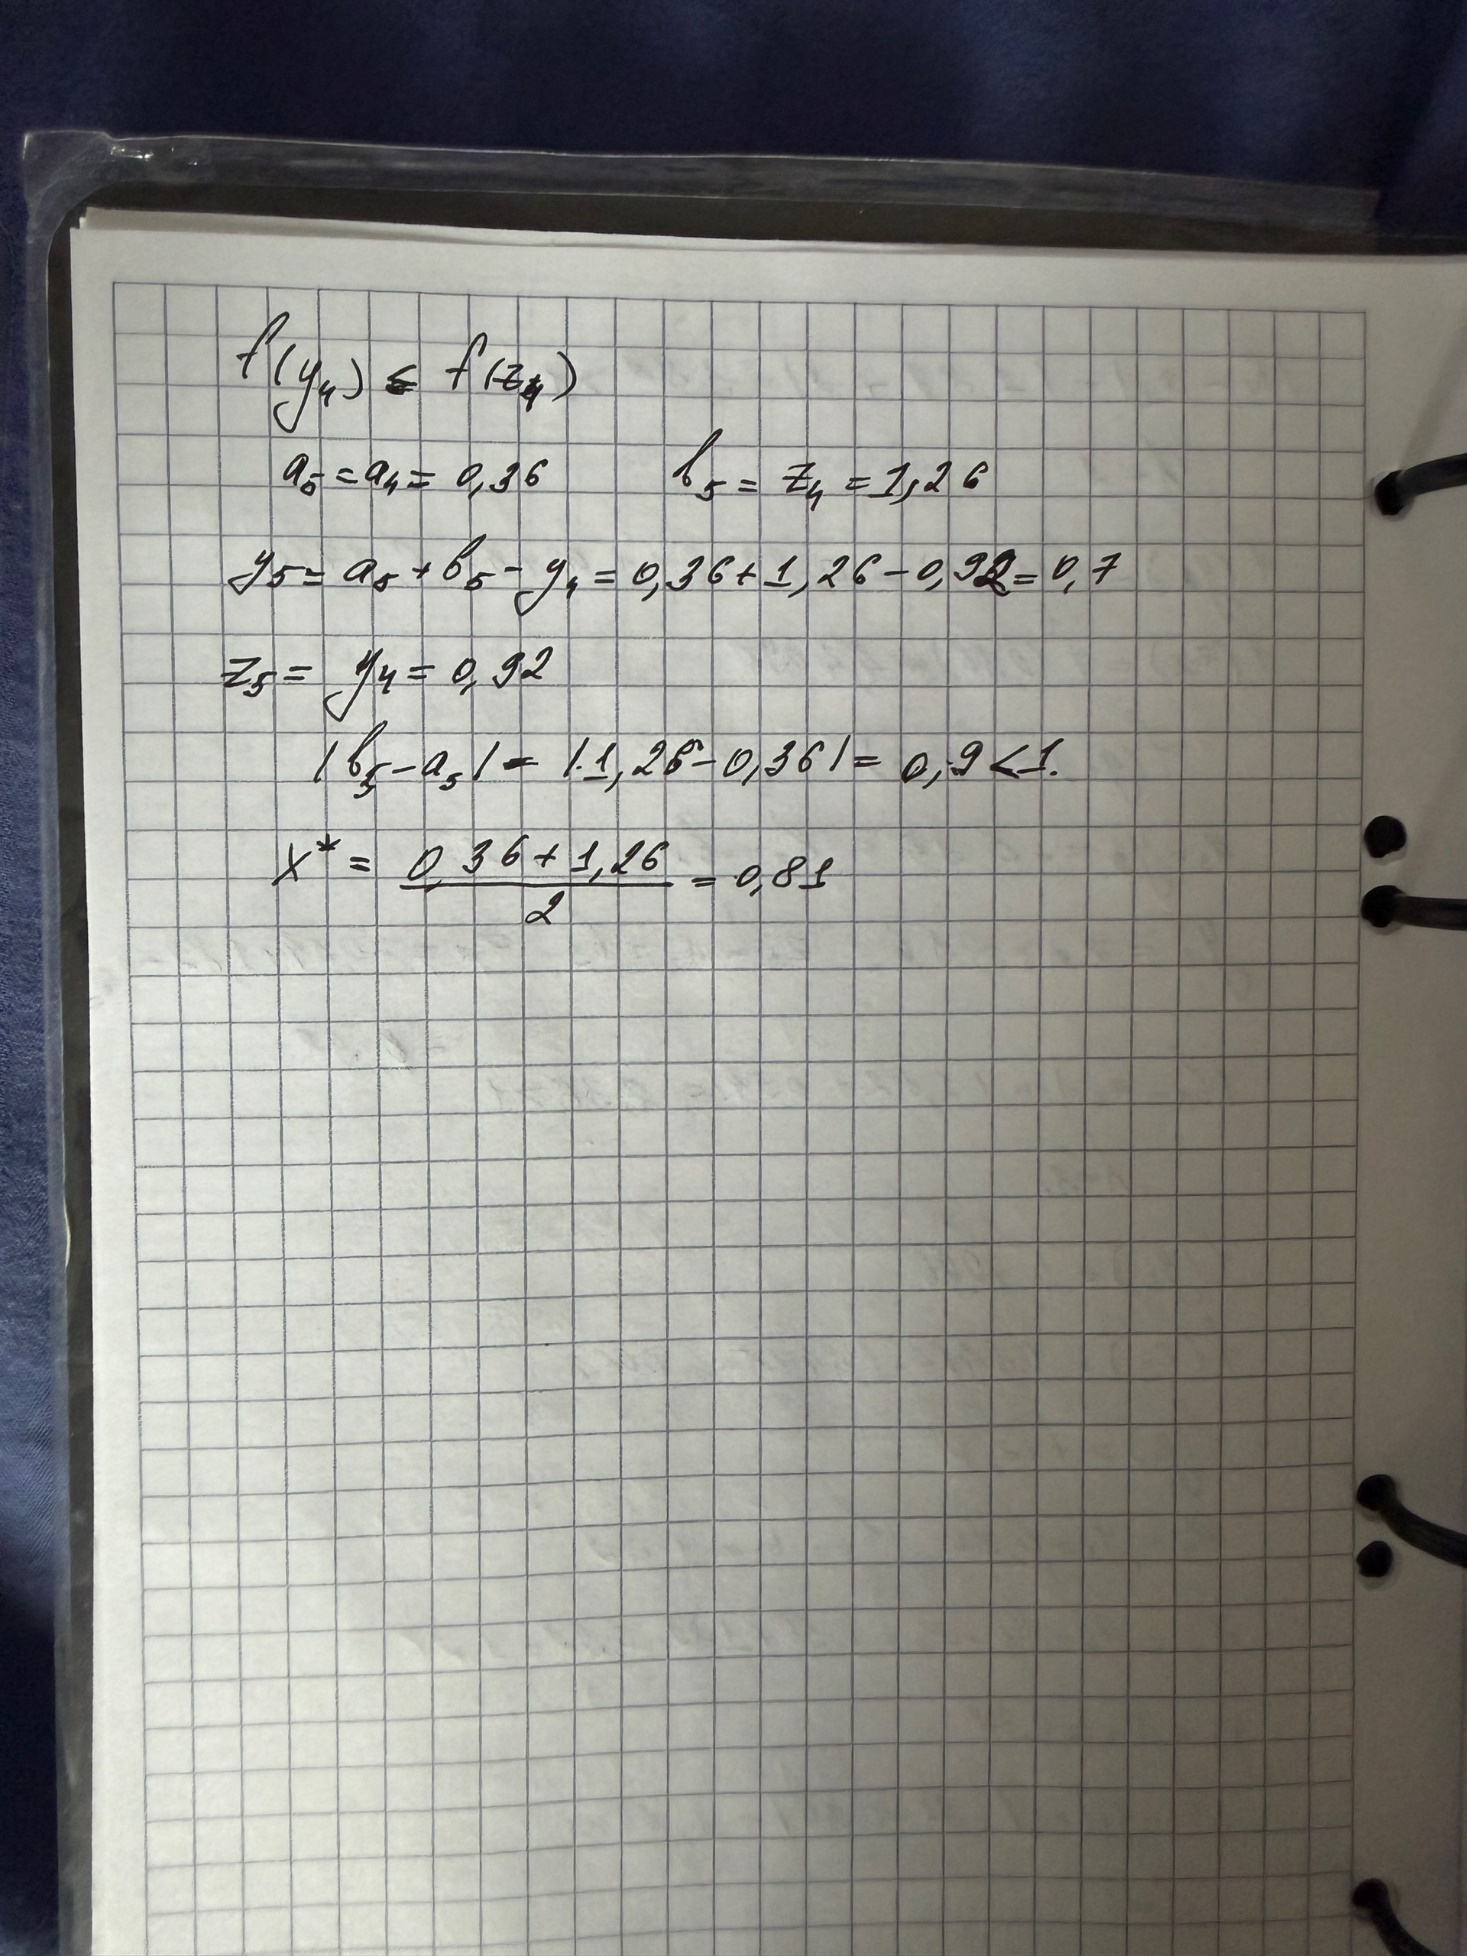 f(y₄) ≤ f(z₄)
a₅ = a₄ = 0,36 b₅ = z₄ = 1,26
y₅ = a₅ + b₅ - y₄ = 0,36 + 1,26 - 0,92 = 0,7
z₅ = y₄ = 0,92
|b₅ - a₅| = |1,26 - 0,36| = 0,9 < 1.
x* = (0,36 + 1,26)/2 = 0,81